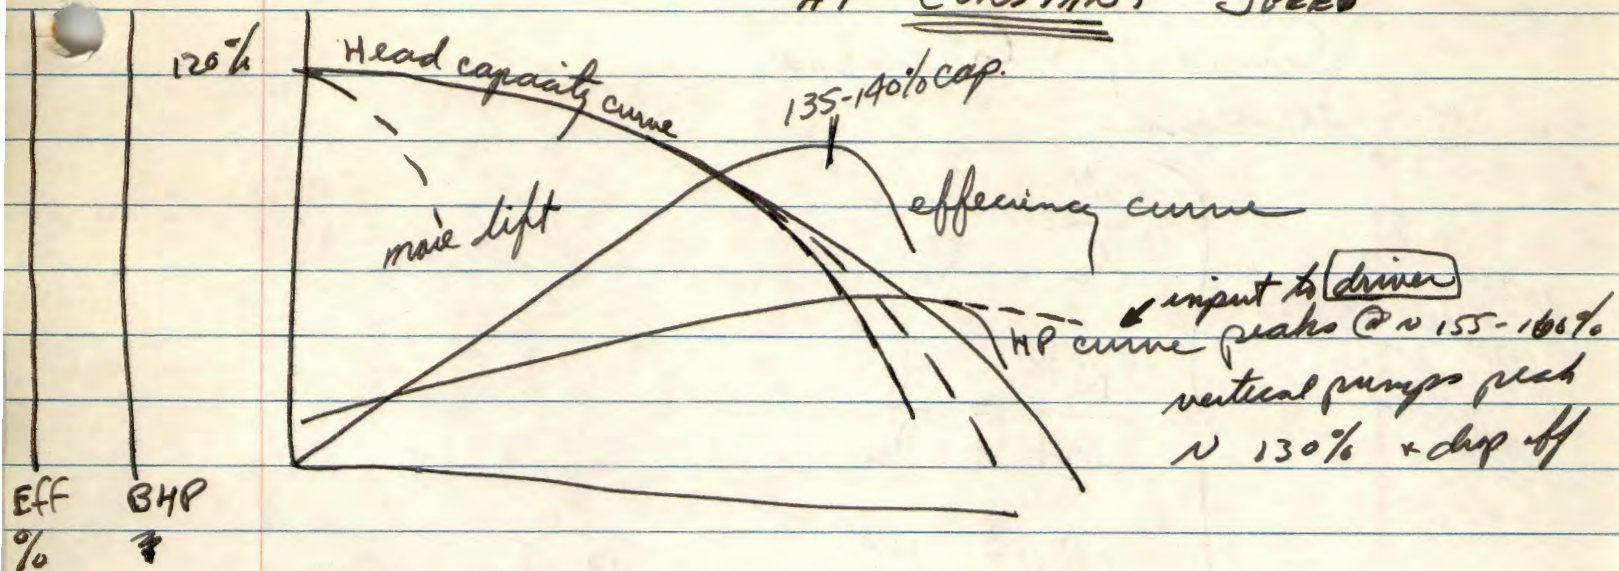 AT CONSTANT SPEED
120%
Head capacity curve
135-140% cap.
more lift
effeciency curve
input to driver
HP curve peaks @ ~ 155-160%
vertical pumps peak
~ 130% + drop off
Eff
%
BHP